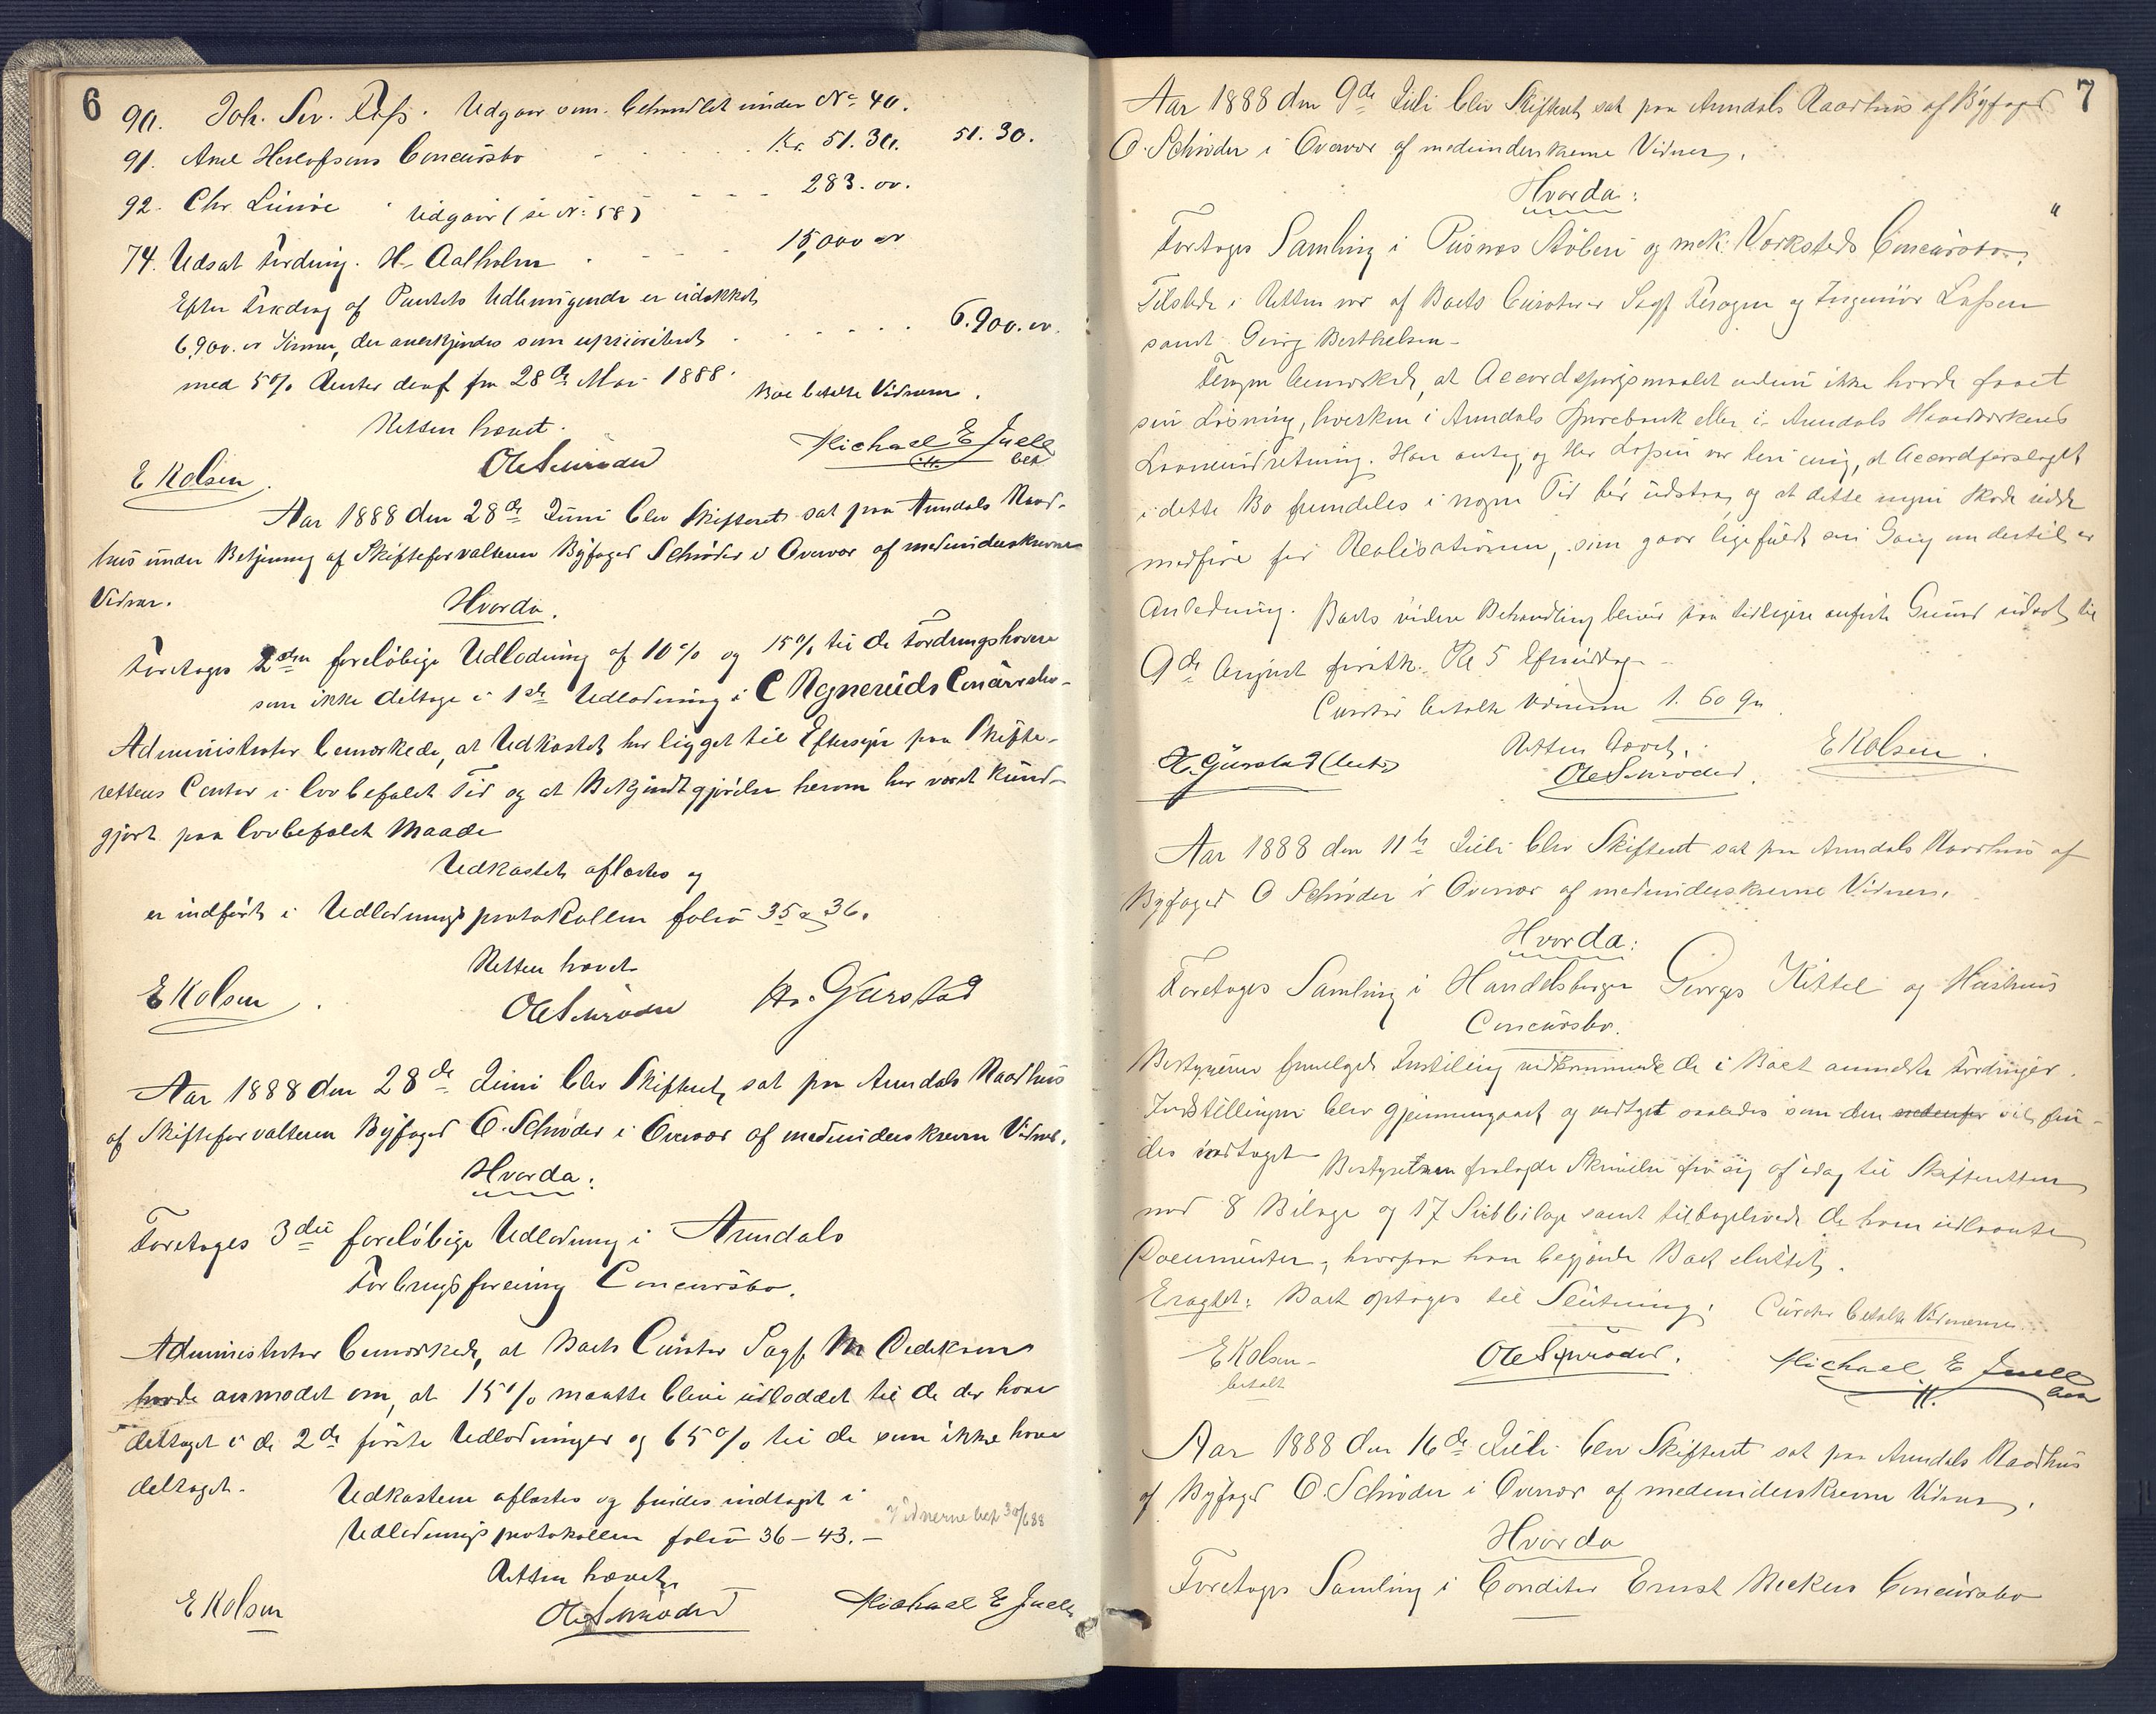 6
90. Joh. Sev. Refs. Udgaar som behandlet under No 40.
91. Axel Herlofsens Concursbo Kr. 51.30. 51.30.
92. Chr. Udgaar (se No 58) 283.00.
74. Udsat Fordring. H. Aalholm 15,000 00
Efter Fradrag af Pantets Udbringende er udækket
6,900.00 Kroner, der anerkjendes som uprioriteret 6.900.00.
med 5% Renter deraf fra 28de Mai 1888.
Boe betalte Vidnerne.
Retten hævet.
E Kolsen. Ole Schrøder Michael E Juell
bet
Aar 1888 den 28de Juni blev Skifteret sat paa Arendals Raad-
hus under Betjening af Skifteforvalteren Byfoged Schrøder i Overvær af medunderskrevne
Vidner.
Hvorda.
Foretoges 2den foreløbige Udlodning af 10% og 15% til de Fordringshavere
som ikke deltoge i 1ste Udlodning i C Rgneruds Concursbo-
Administrator bemærkede, at Udkastet har ligget til Eftersyn paa Skifte-
rettens Contor i lovbefalet Tid og at Bekjendtgjørelse herom har været kund-
gjort paa lovbefalet Maade
Udkastet oplæstes og
er indført i Udlodningsprotokollen folio 35 & 36.
Retten hævet
E Kolsen. Ole Schrøder H. Gjurstad
Aar 1888 den 28de Juni blev Skifteret sat paa Arendals Raadhus
af Skifteforvalteren Byfoged O. Schrøder i Overvær af medunderskrevne Vidner.
Hvorda:
Foretoges 3die foreløbige Udlodning i Arendals
Forbrugsforening Concursbo.
Administrator bemærkede, at Boets Curator Sagf. M Dedekam
havde anmodet om, at 15% maatte blive udloddet til de der have
deltaget i de 2de første Udlodninger og 65% til de som ikke have
deltaget.
Udkastene oplæstes og findes indtaget i
Udlodningsprotokollen folio 36-43.-
Vidnerne bet 30/6 88
Retten hævet
E Kolsen Ole Schrøder Michael E Juell
7
Aar 1888 den 9de Juli blev Skifteret sat paa Arendals Raadhus af Byfoged
O. Schrøder i Overvær af medunderskrevne Vidner.
Hvorda:
Foretoges Samling i Pusnes Støberi og mek. Værksteds Concursbo.
Tilstede i Retten var af Boets Curatorer Sagf. og Ingeniør Lassen
samt Georg Berthelsen-
bemærkede, at Accordspørgsmaalet endnu ikke havde faaet
sin Løsning, hverken i Arendals Sparebank eller i Arendals Haandværkeres
Laaneindretning. Han antog, og Hr Lassen var heri enig, at Accordforslaget
i dette Bo fremdeles i nogen Tid bør udstaa, og at dette ingen Skade vilde
medføre for Realisationen, som gaar ligefuldt sin Gang om dertil er
Anledning. Boets videre Behandling bliver paa tidligere anførte Grund udsat til
9de August førstk. Kl 5 Eftermiddag-
Curator betalte Vidnerne 1. 60
Retten hævet.
H. Gjurstad (bet) Ole Schrøder. E Kolsen.
Aar 1888 den 11te Juli blev Skifteret sat paa Arendals Raadhus af
Byfoged O Schrøder i Overvær af medunderskrevne Vidner.
Hvorda:
Foretoges Samling i Handelsborger Georges Kittel og Hustrus
Concursbo.
Bestyreren fremlagde Indstilling vedkommende de i Boet anmeldte Fordringer.
Indstillingen blev gjennemgaaet og vedtaget saaledes som den vil fin-
des indtaget Bestyreren fremlagde Skrivelse fra sig af idag til Skifteretten
med 8 Bilage og 17 Subbilage samt tilbageleverede de ham udlaante
Documenter, hvorpaa han begjærede Boet sluttet.
Eragtet: Boet optages til Slutning. Curator betalte Vidnerne.
E Kolsen- Ole Schrøder. Michael E Juell
betalt
Aar 1888 den 16de Juli blev Skifteret sat paa Arendals Raadhus
af Byfoged O. Schrøder i Overvær af medunderskrevne Vidner.
Hvorda
Foretoges Samling i Conditor Ernst Concursbo